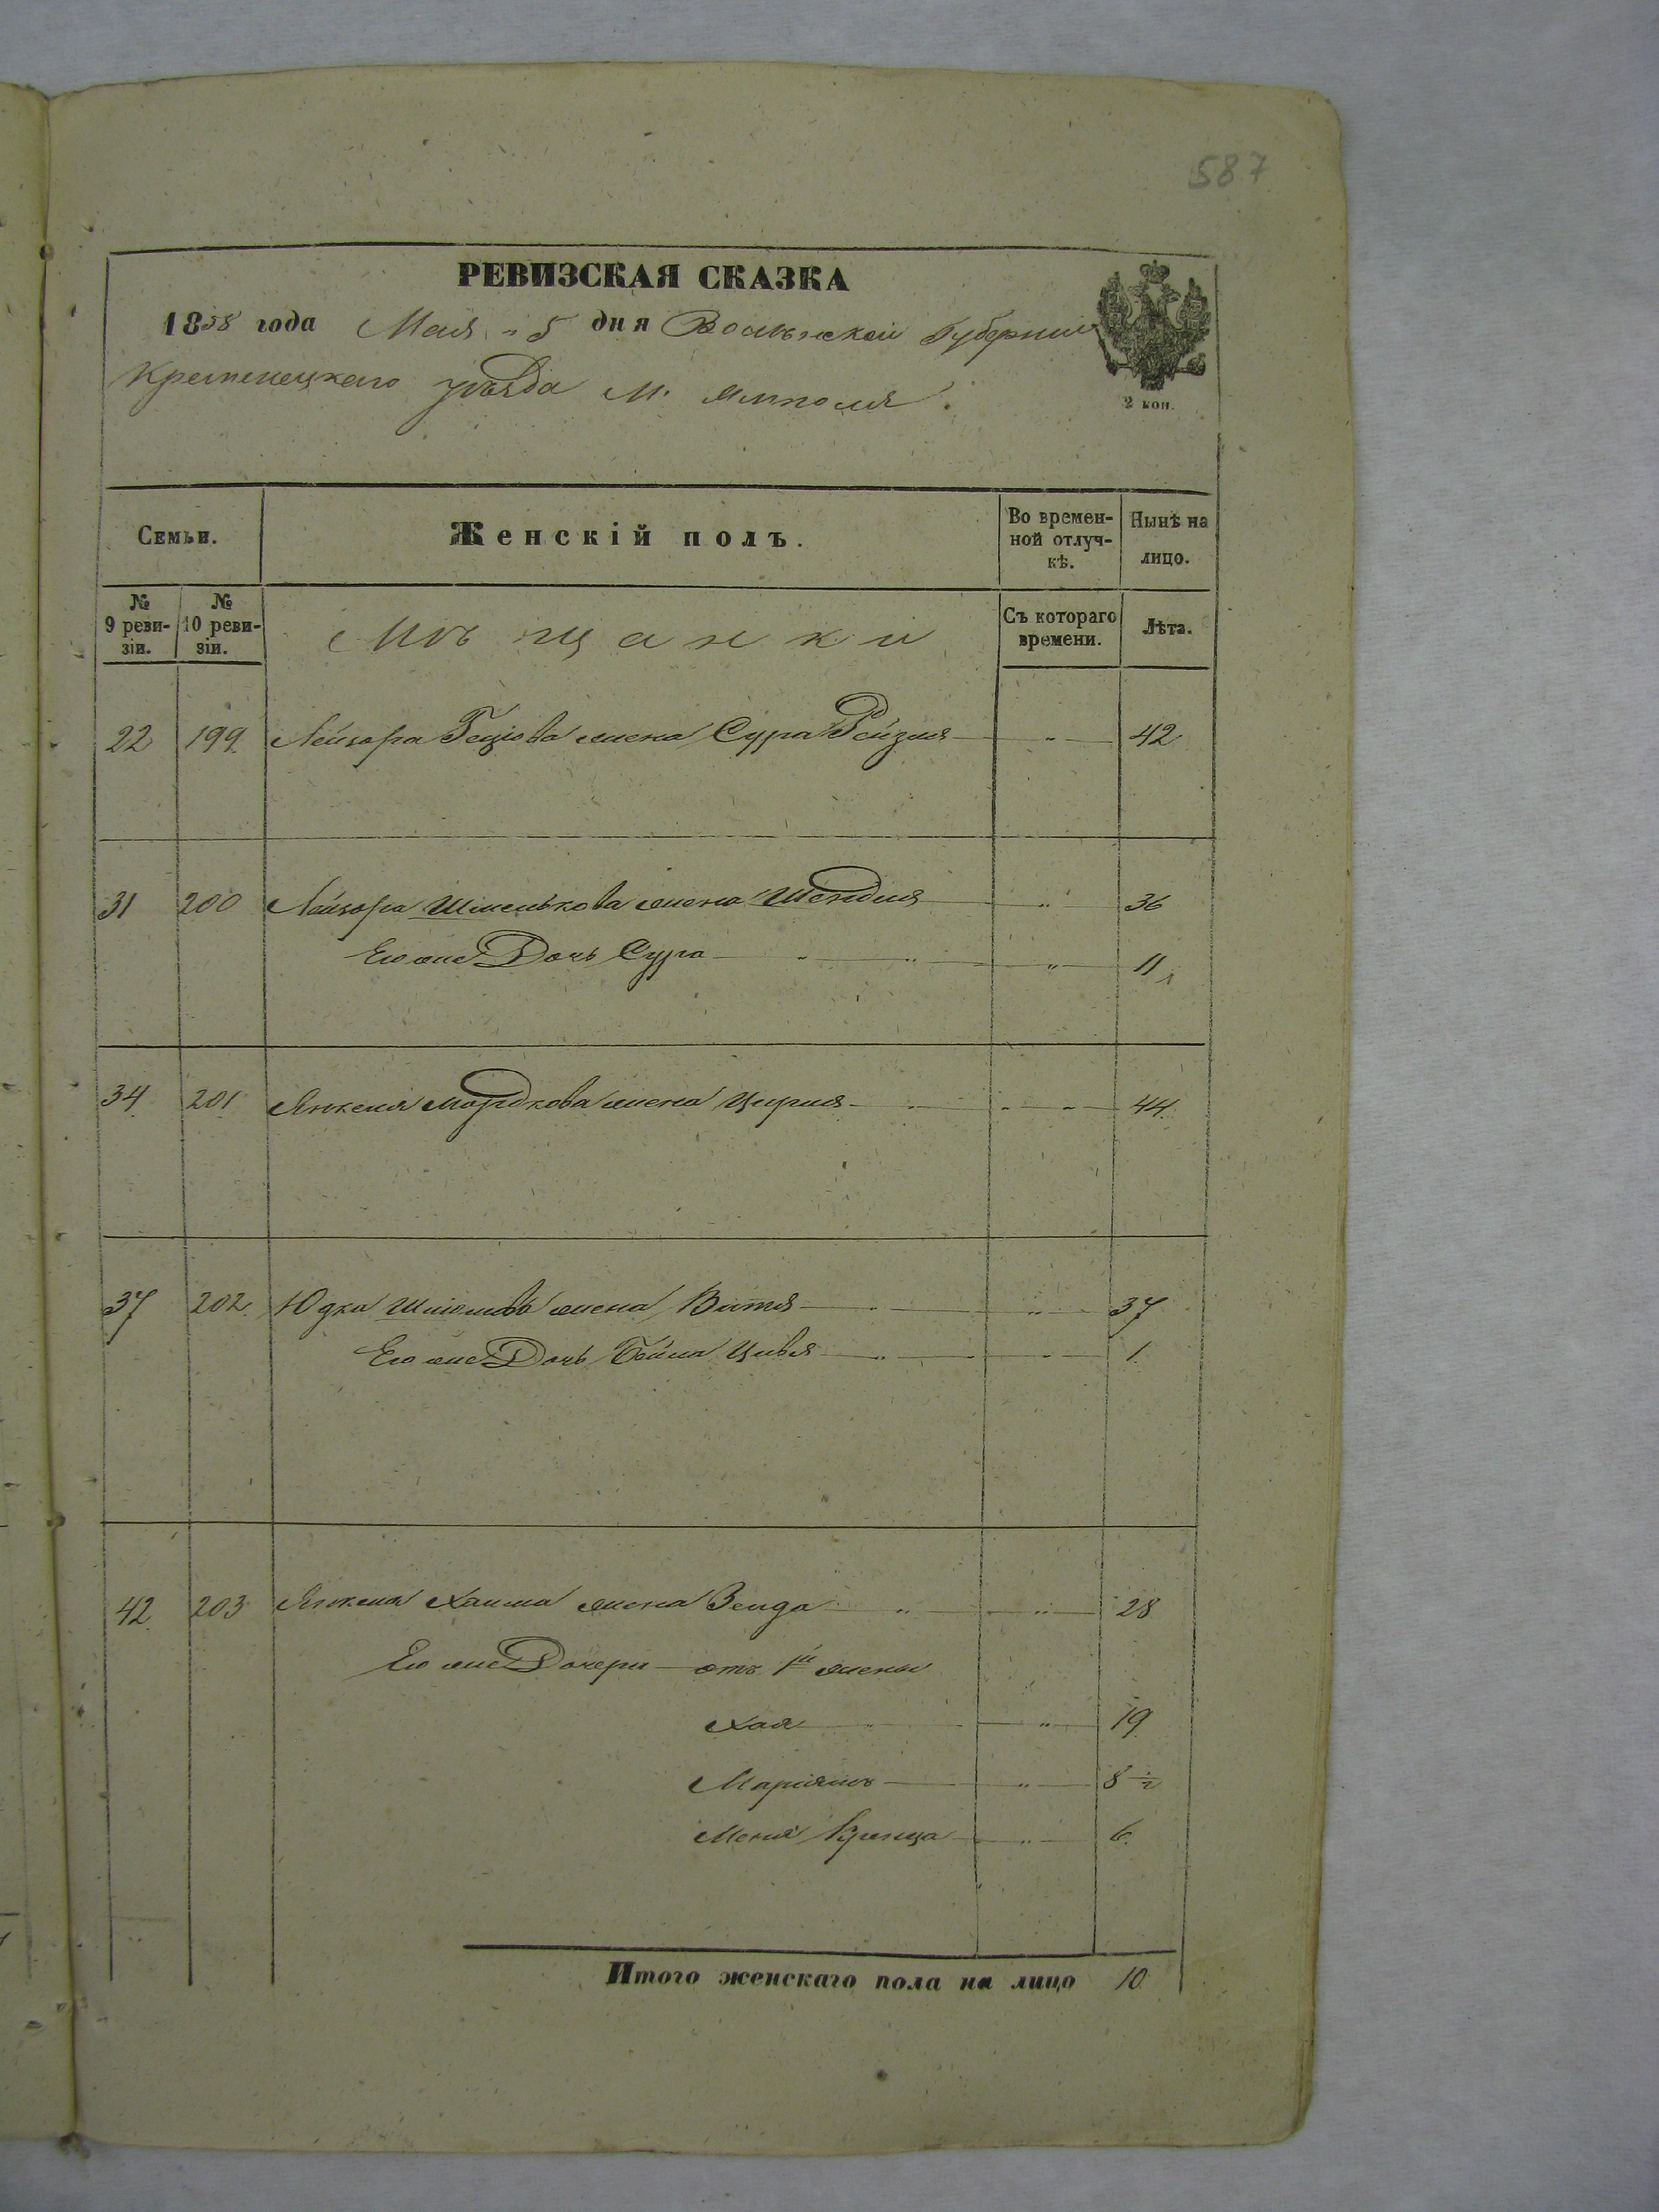 587
РЕВИЗСКАЯ СКАЗКА
1858 года Мая 5 дня Волынской Губерніи
Кременецкаго уѣзда М. Ямполя.
2 коп.
Семьи. Женскій полъ. Во временной отлучкѣ. Нынѣ на лицо.
№ 9 ревизіи. № 10 ревизіи. Мѣщанки Съ котораго времени. Лѣта.
22 199 Лейзора Геціова жена Сура Рейзля — " — 42
31 200 Лейзора Шмелькова жена Шендля — " — 36
Его же Дочь Сура — " — 11
34 201 Янкеля Мордкова жена Цирля — " — 44
37 202 Юдка жена Витя — " — 37
Его же Дочь Бейла Цивья — " — 1
42 203 Янкеля Хаима жена Зенда — " — 28
Его же Дочери отъ 1й жены
Хая — " — 19
Маріямъ — " — 8 1/2
Меня — " — 6
Итого женскаго пола на лицо 10